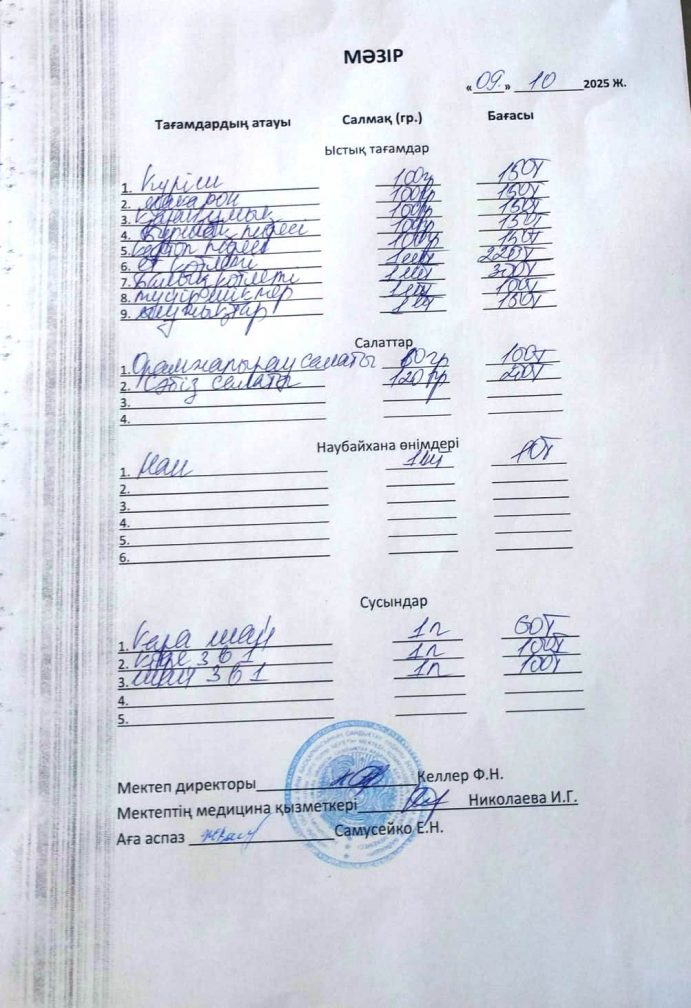 МӘЗІР
«09.» 10 2025 Ж.
Тағамдардың атауы Салмақ (гр.) Бағасы
Ыстық тағамдар
1. Күріш 100гр 150т
2. макарон 100гр 150т
3. Қарақұмық 100гр 150т
4. Бұршақ пюреси 100гр 150т
5. картоп пюреси 100гр 150т
6. ет котлеті 1шт 220т
7. балық котлеті 1шт 300т
8. 1шт 100т
9. 1шт 150т
Салаттар
1. Орамжапырақ салаты 60гр 100т
2. Сәбіз салаты 120гр
3.
4.
Наубайхана өнімдері
1. Нан 1шт 10т
2.
3.
4.
5.
6.
Сусындар
1. Кара шай 1п 60т
2. Кофе 3 в 1 1п 100т
3. шай 3 в 1 1п 100т
4.
5.
Мектеп директоры Келлер Ф.Н.
Мектептің медицина қызметкері Николаева И.Г.
Аға аспаз Самусейко Е.Н.